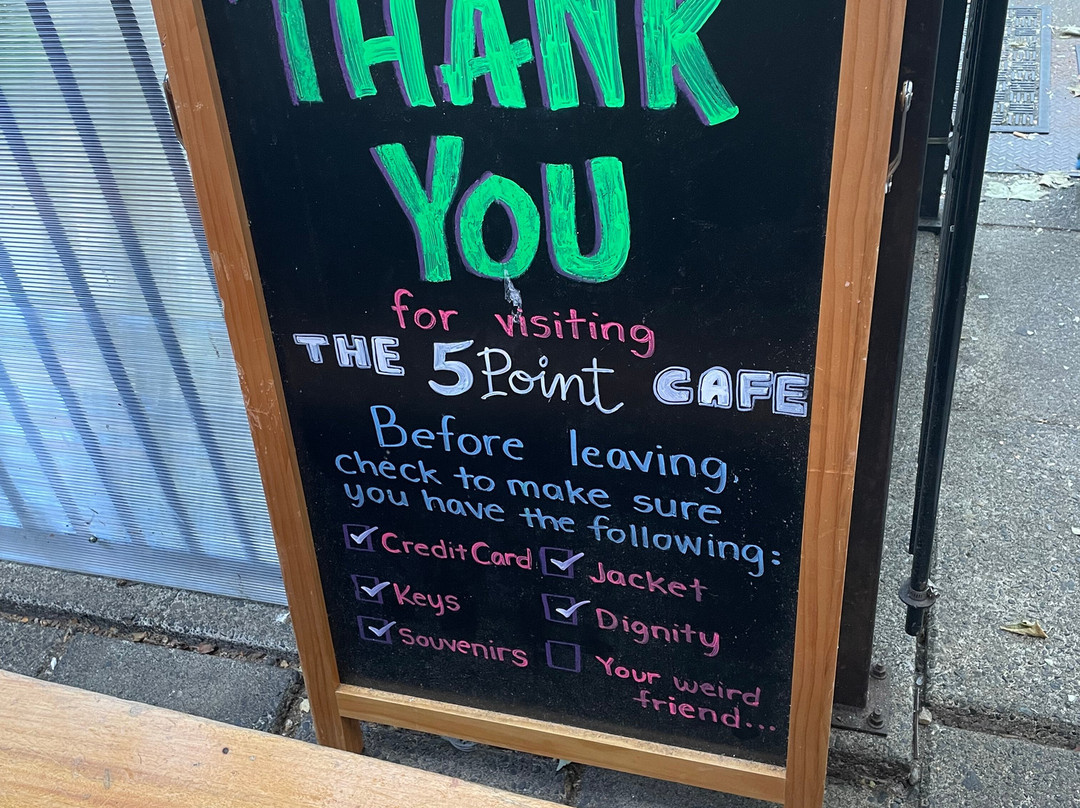 THANK
YOU
for visiting
THE 5 Point CAFE
Before leaving,
check to make sure
you have the following:
Credit Card
Jacket
Keys
Dignity
Souvenirs
Your weird
friend...